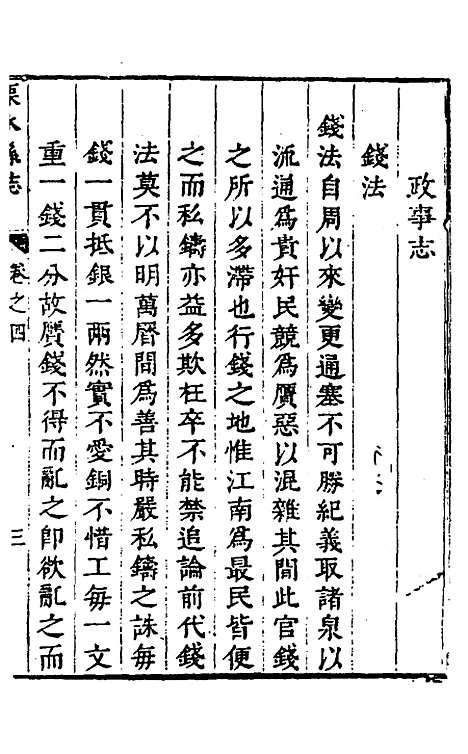 政事志
錢法
錢法自周以來變更通塞不可勝紀義取諸泉以
流通爲貴奸民競爲贋惡以混雜其間此官錢
之所以多滯也行錢之地惟江南爲最民皆便
之而私鑄亦益多欺枉卒不能禁追論前代錢
法莫不以明萬曆間爲善其時嚴私鑄之誅每
錢一貫抵銀一兩然實不愛銅不惜工每一文
重一錢二分故贋錢不得而亂之卽欲亂之而
水縣志
卷之四
三